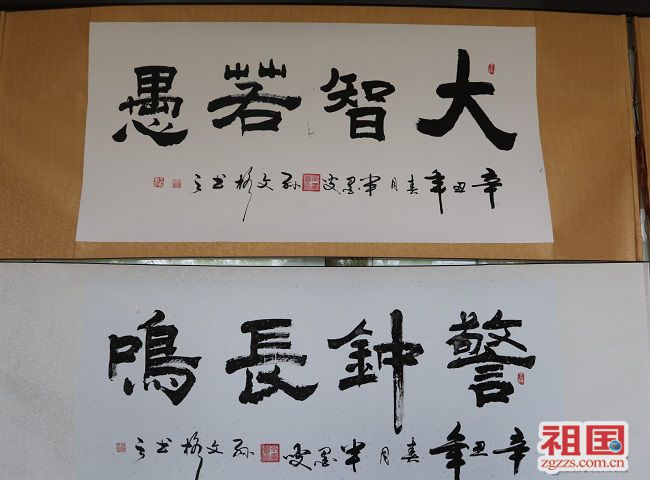 大智若愚
辛丑年春月半墨叟孙文彬书之
警鐘長鳴
辛丑年春月半墨叟孙文彬书之
祖国
zgzzs.com.cn